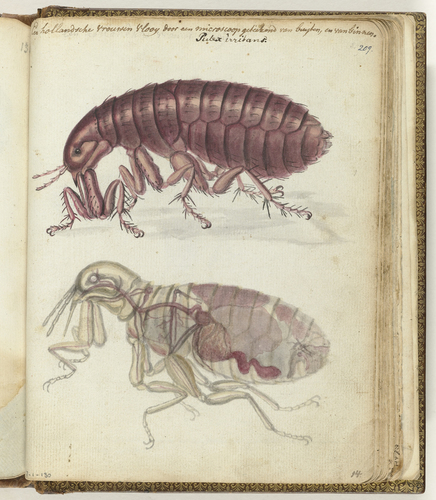 Een hollandsche vrouwen vlooy door een microscoop getekend van buyten, en van binnen.
Pulex irritans.
209
14.